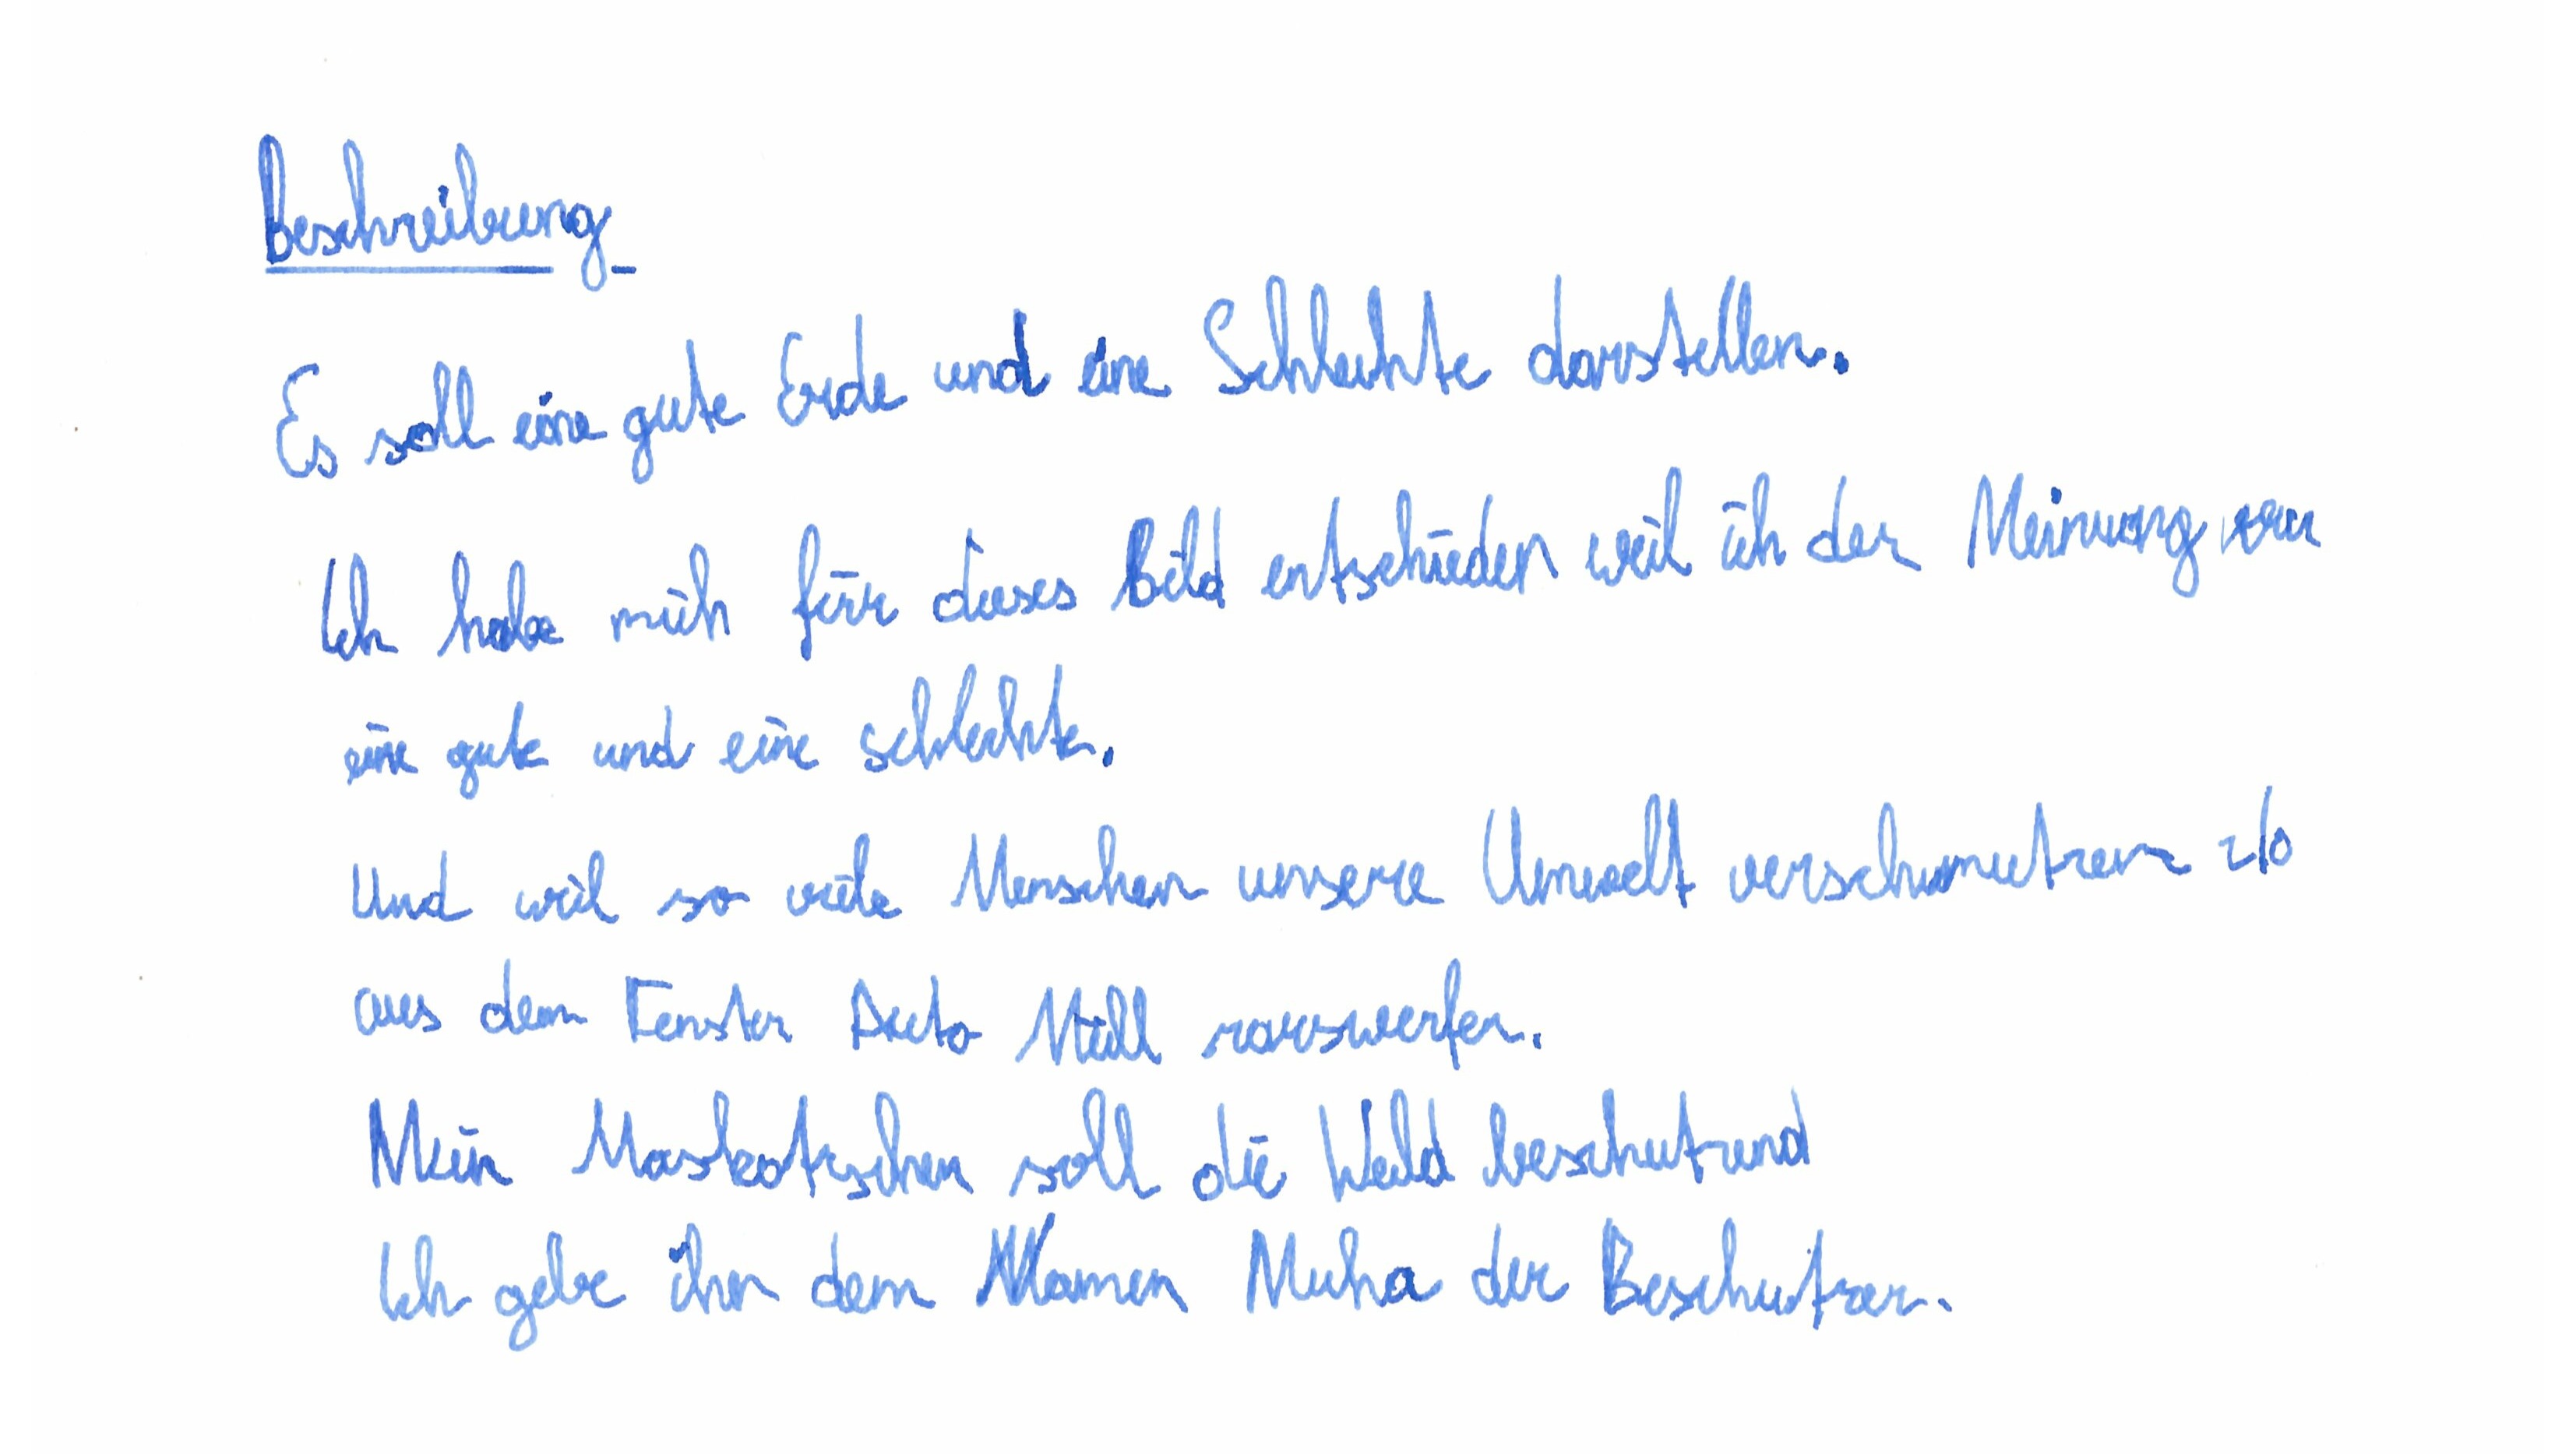 Beschreibung
Es soll eine gute Erde und eine Schlechte darstellen.
Ich habe mich für dieses Bild entschieden weil ich der Meinung war
eine gute und eine schlechte.
Und weil so viele Menschen unsere Umwelt verschmutzen zb
aus dem Fenster Auto Müll rauswerfen.
Mein Maskotschen soll die Weld beschutzend
Ich gebe ihn dem Namen Muha der Beschutzer.